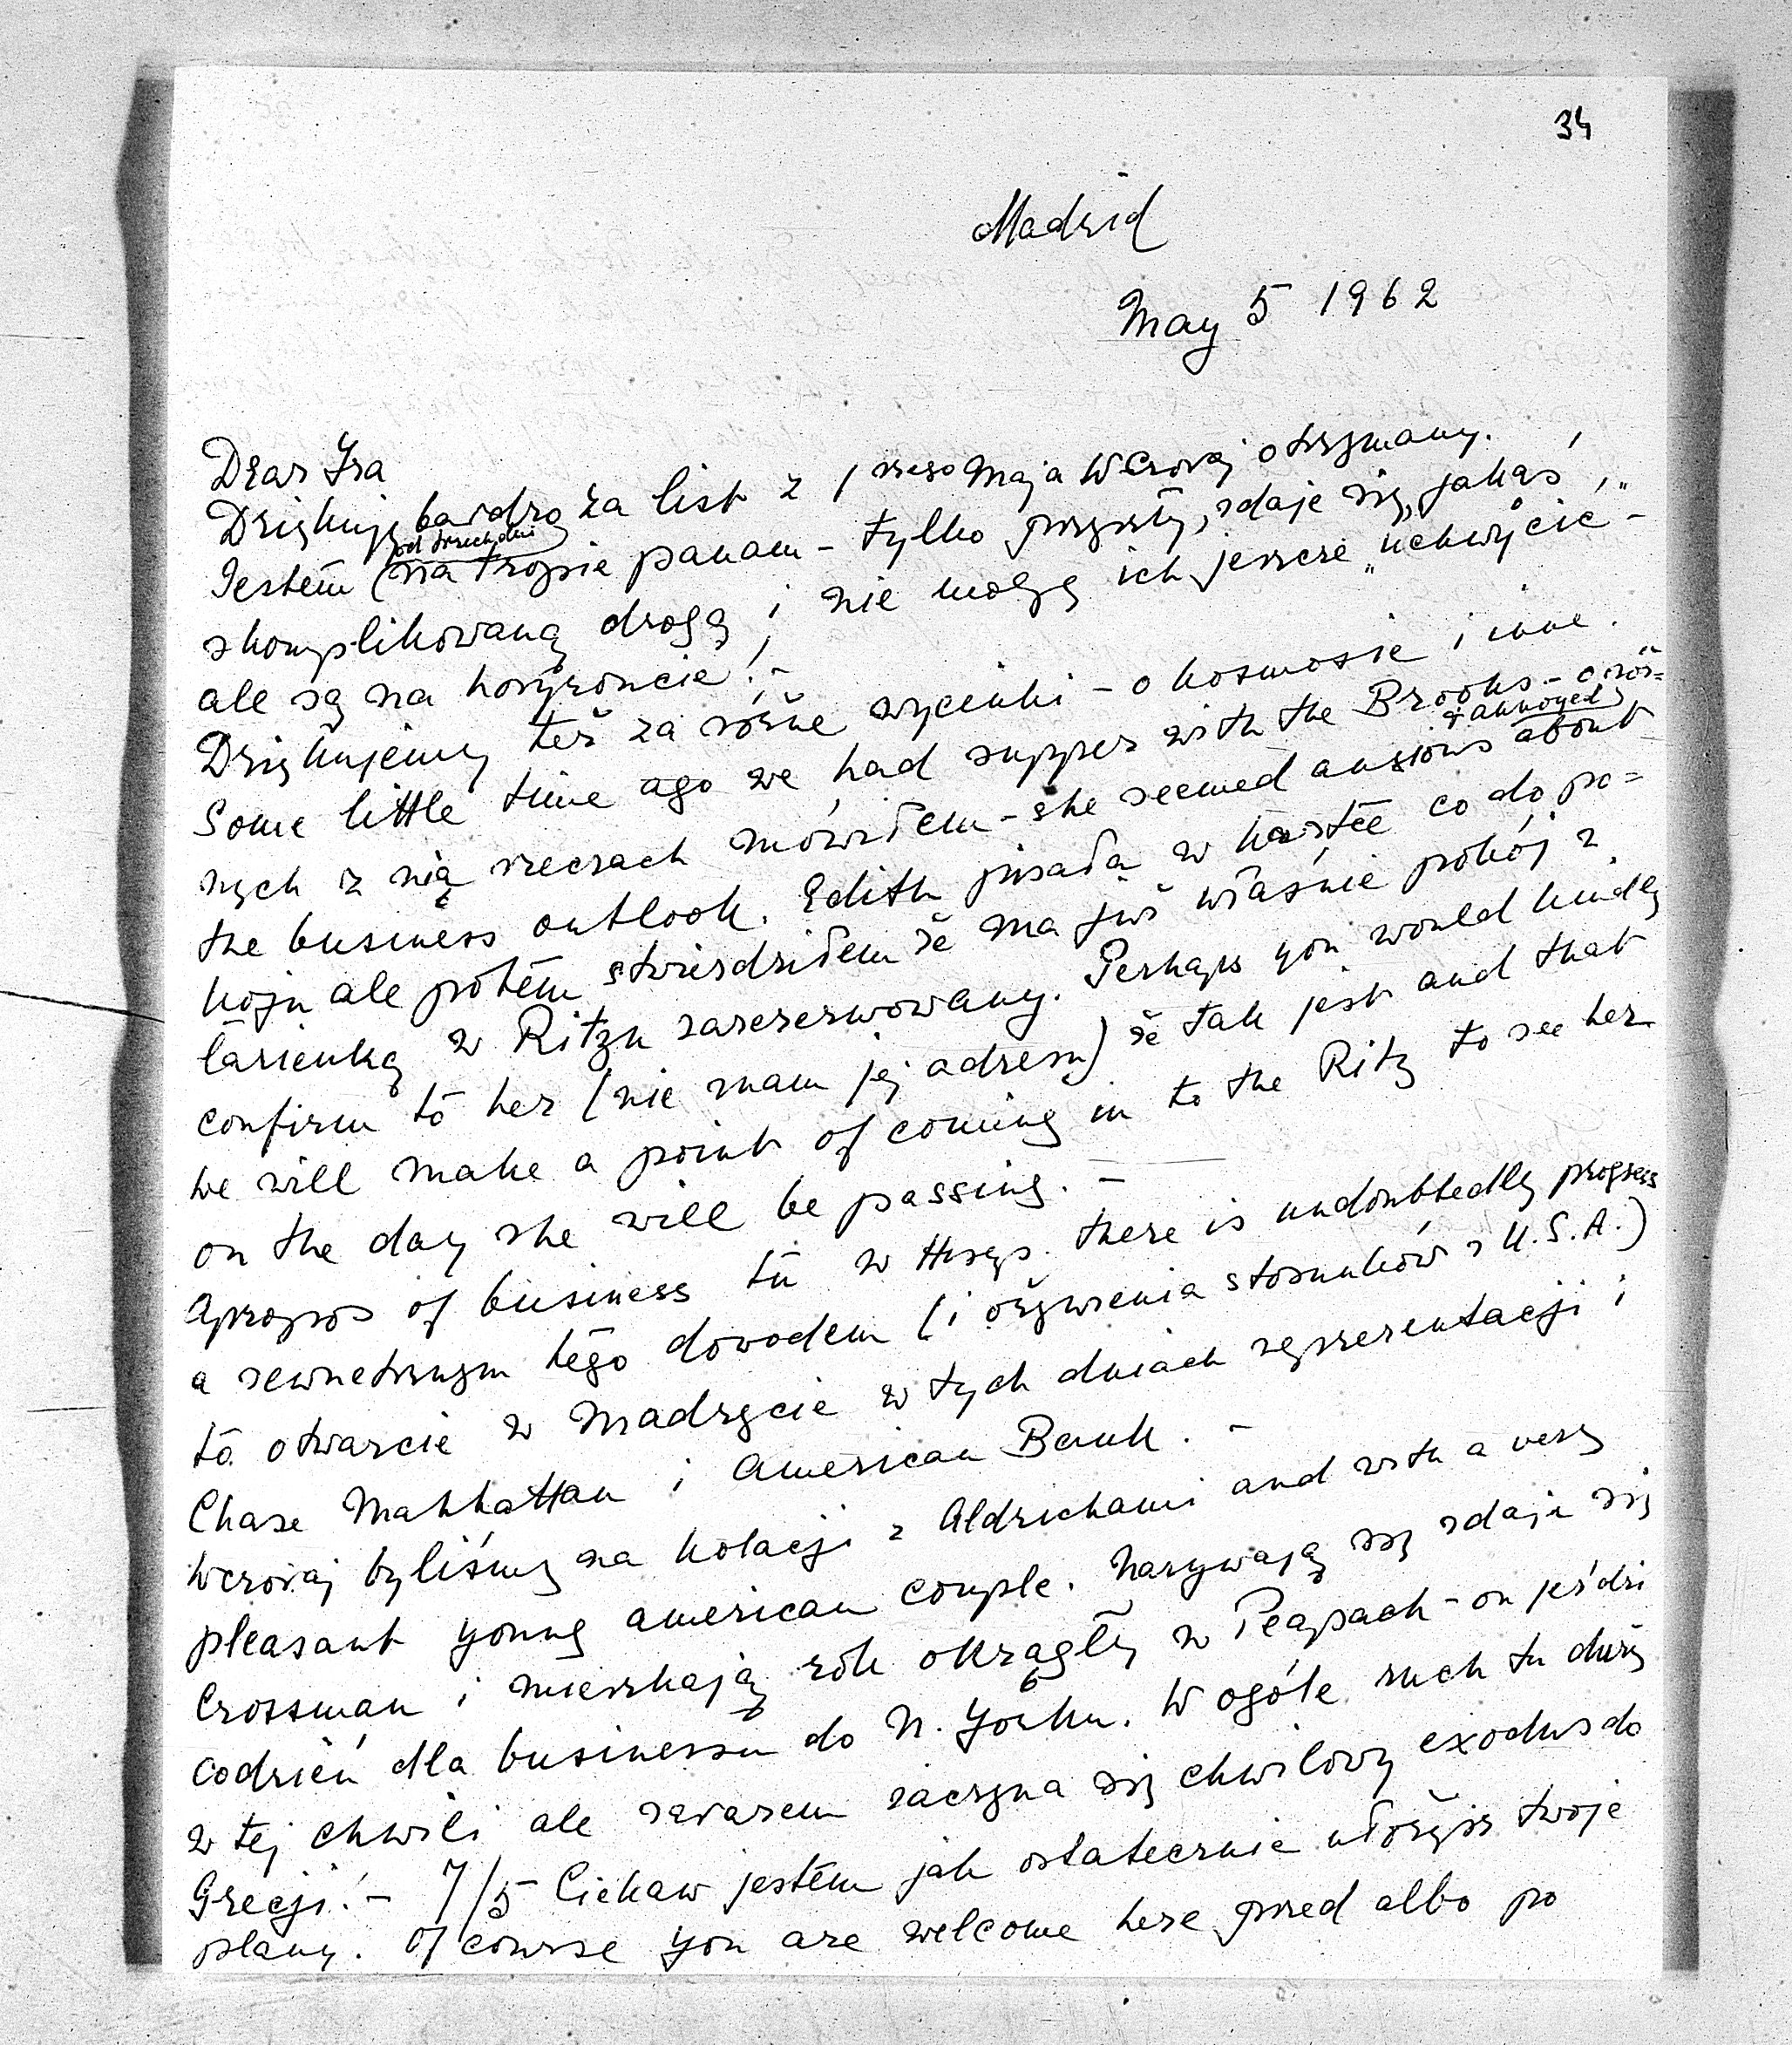 34
Madrid
May 5 1962
Dear Ira
Dziękuję bardzo za list z 1szego Maja Wczoraj otrzymany.
Jestem (od trzech dni) na tropie panam - tylko przyszły, zdaje się, jakąś
skomplikowaną drogą i nie mogę ich jeszcze „uchwycić" -
ale są na horyzoncie! -
Dziękujemy też za różne wycinki - o kosmosie i inne.
Some little time ago we had supper with the Brooks - o róż=
nych z nią rzeczach mówiłem - she seemed anxious & annoyed about
the business outlook. Edith pisała w kartce co do po=
koju ale potem stwierdziłem że ma już właśnie pokój z
łazienką w Ritzu zarezerwowany. Perhaps you would kindly
confirm to her (nie mam jej adresu) że tak jest and that
we will make a point of coming in to the Ritz to see her
on the day she will be passing. -
Apropos of business tu w Hiszp. there is undoubtedly progress
a zewnetrznym tego dowodem (i ożywienia stosunków z U.S.A.)
to otwarcie w Madrycie w tych dniach reprezentacji i
Chase Manhattan i American Bank. -
Wczoraj byliśmy na kolacji z Aldrichami and with a very
pleasant young american couple. Nazywają się zdaje się
Crossman i mieszkają rok okrągły w - on jeździ
codzień dla businessu do N. Yorku. W ogóle ruch tu duży
w tej chwili ale zarazem zaczyna się chwilowy exodus do
Grecji! - 7/5 Ciekaw jestem jak ostatecznie ułożysz twoje
plany. Of course you are welcome here przed albo po